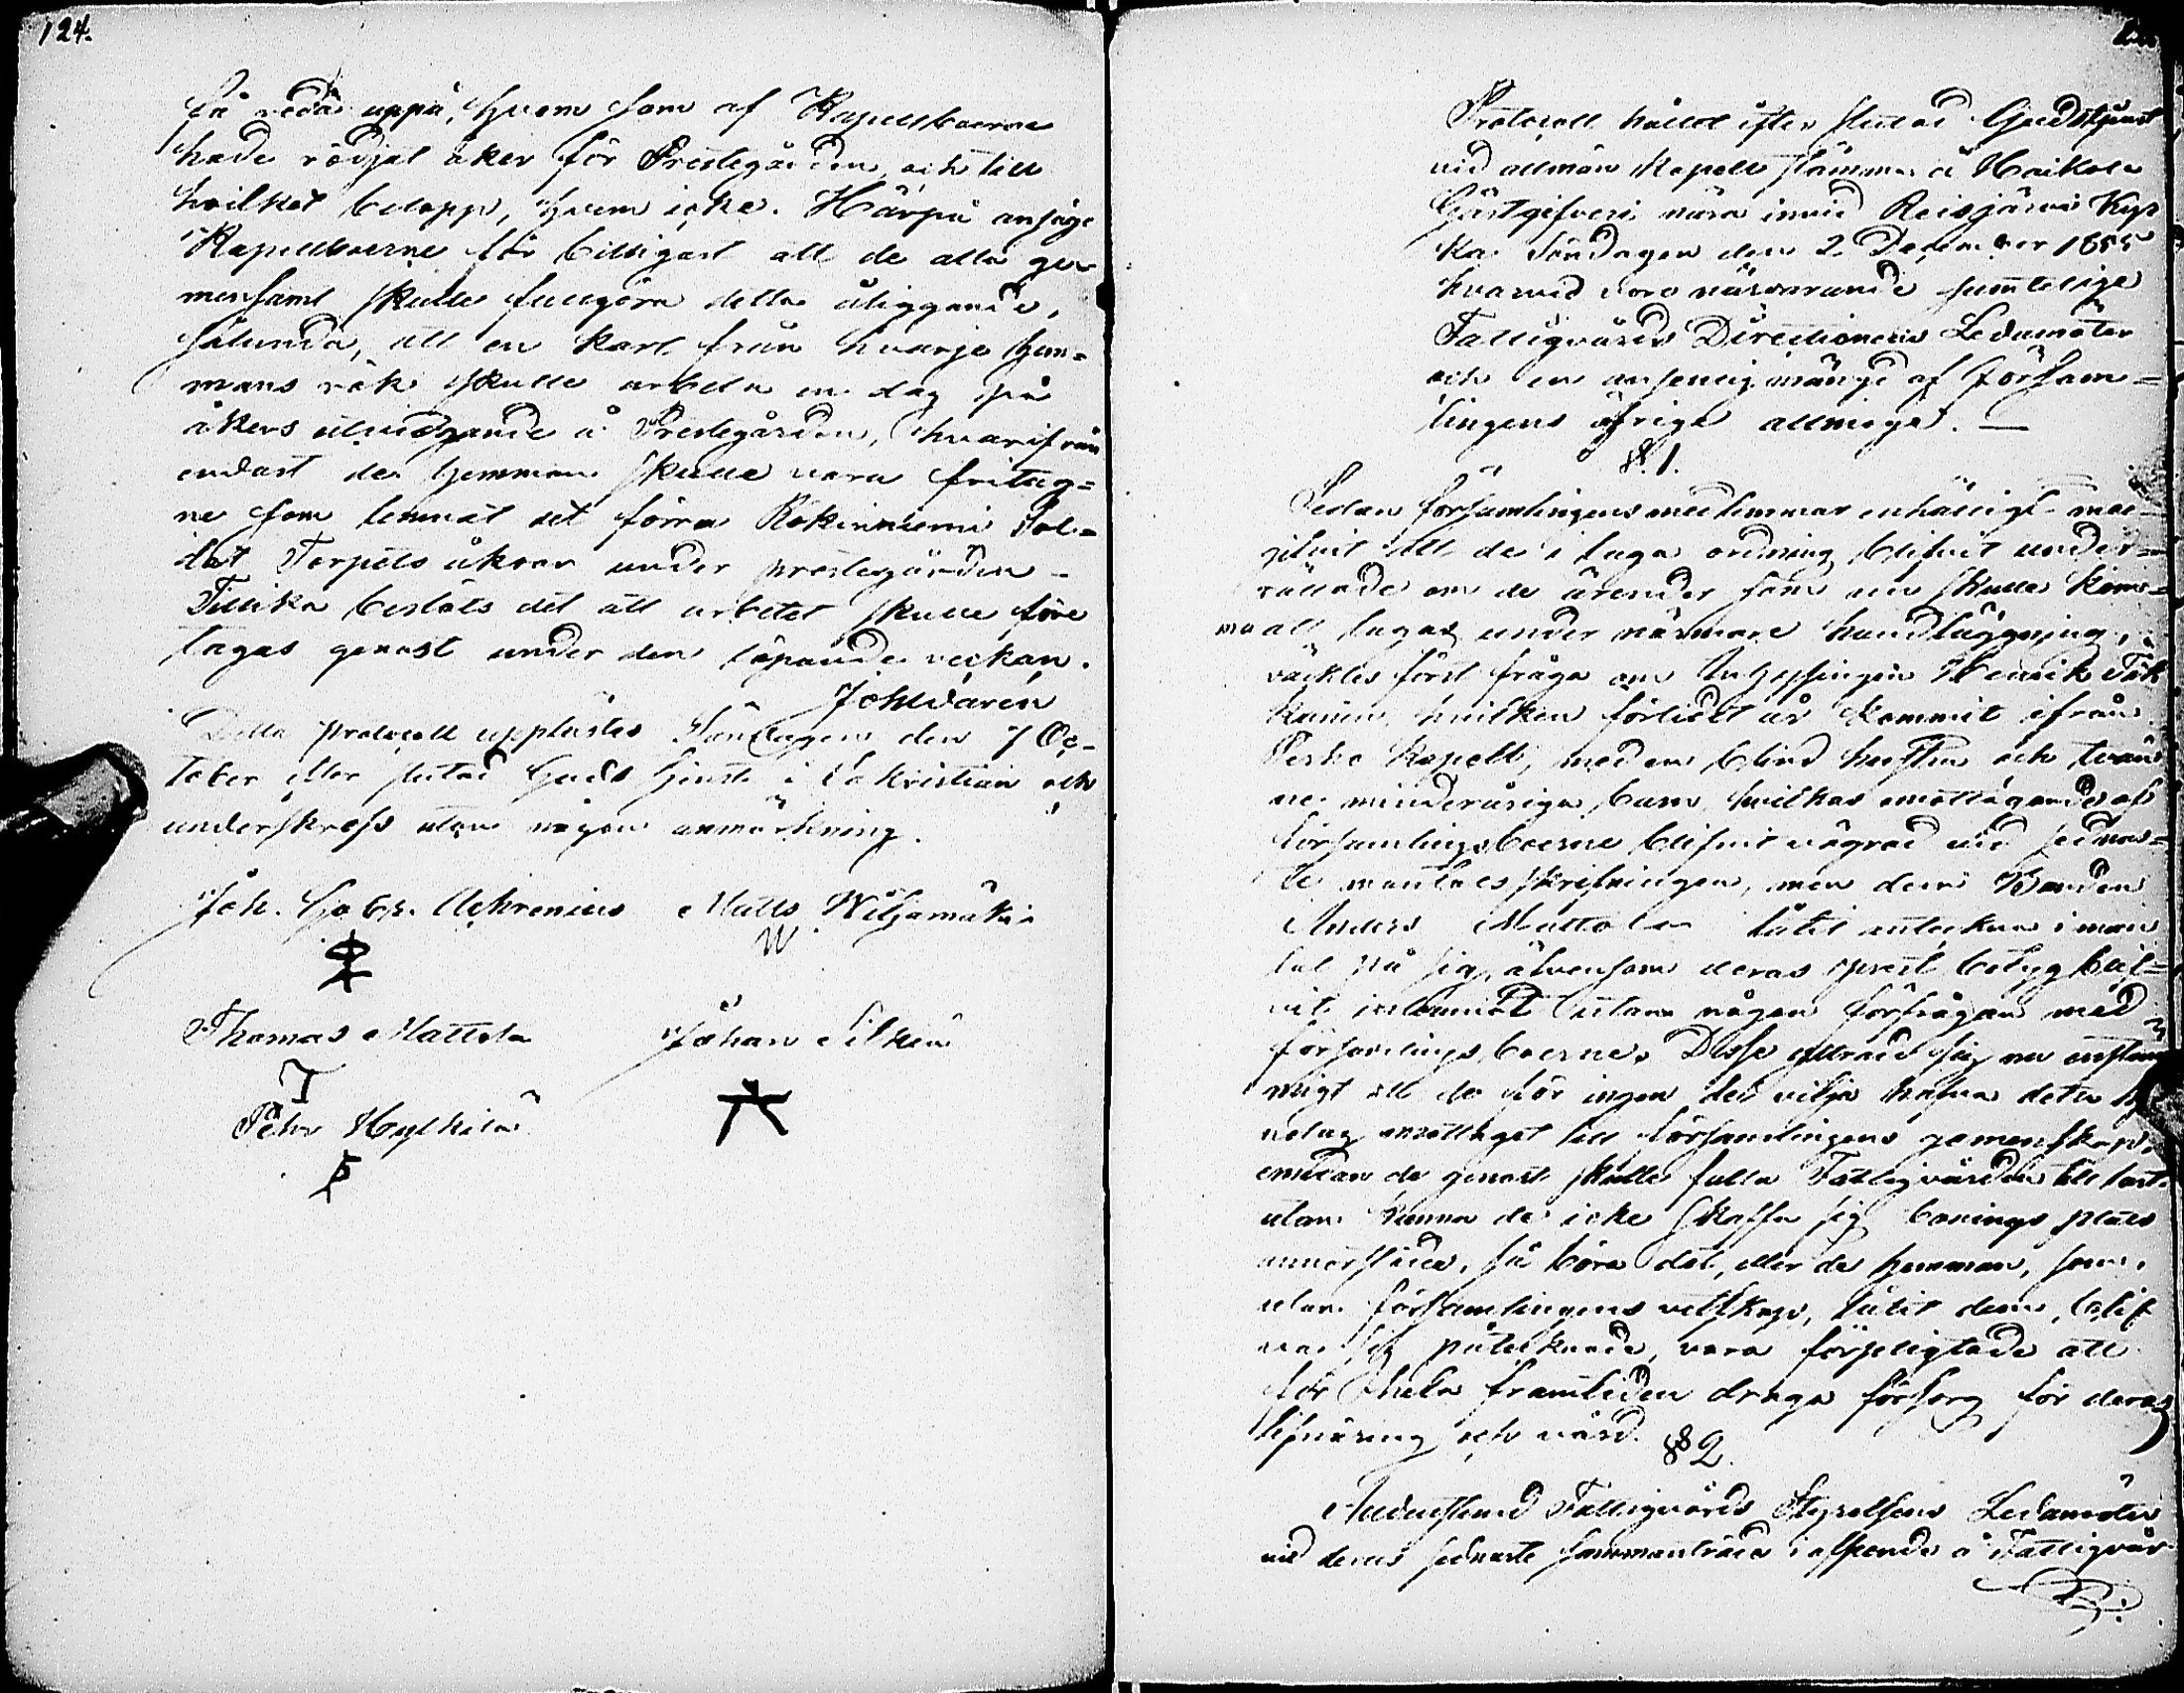 124.
få reda uppå, hvem som af Kapellboerne
hade rödjat åker för Prestegården, och till
hvilket belopp, hvem icke. Härpå ansågo
Kapellboerne för billigast att de alla ge-
mensamt skulle fullgöra detta åliggande,
sålunda, att en karl från hvarje hem-
mans rök skulle arbeta en dag på
åkers utvidgande å Prestegården, hvarifrån
endast de hemman skulle vara fritag-
ne som lemnat det förra Rokinniemi Sol-
dat Torpets åkrar under prestegården -
Tillika beslöts det att arbetet skulle före
tagas genast under den löpande veckan.
In fidem
Detta protocoll upplästes Söndagen den 7 Oc-
tober efter slutad Guds tjenst i Sakristian och
underskrefs utan någon anmärkning.
Joh. Gabr. Achrenius Matts Wiljamäki
W
Thomas Mattola Johan Silkin
T
Pehr Hylkilä
Protocoll hållet efter slutad Gudstjenst
vid allmän Kapell stämma å Haikola
Gästgifveri nära invid Reisjärvi Kyr
ka Söndagen den 2 December 1855
hvarvid voro närvarande samtelige
Fattigvårds Directionens Ledamöter
och en ansenlig mängd af Försam-
lingens öfriga allmoge. —
§ 1.
Sedan församlingens medlemmar enhälligt med-
gifvit att de i laga ordning blifvit under-
rättade om de ärender som nu skulle kom-
ma att tagas under närmare handläggning,
väcktes först fråga om Inhysingen Henrik
hvilken förlidet år kommit ifrån
Kapell, med en blind hustru och tvän
ne minderåriga barn, hvilkas emottagande af
församlingsboerne blifvit vägrad vid sednas-
te mantalsskrifningen, men dem Bonden
Anders Mattola låtit anteckna i man
tal på sig, äfvensom deras prest betyg blif-
vit inlemnadt utan någon förfrågan med
församlingsboerne. Desse yttrade sig nu enstäm
migt att de för ingen del vilja hafva detta
emottaget till församlingens gemenskap,
emedan de genast skulle falla Fattigvården till last
utan kunna de icke skaffa sig bonings plats
annorstädes, så böra det, eller de hemman, som
utan församlingens vettskap, låtit dem, blif
va sig påtecknade, vara förpligtade att
för hela framtiden draga försorg för deras
lifnäring och vård.
§ 2
Fattigvårds Styrelsens Ledamöter
vid deras sednaste sammanträde å Fattigvår